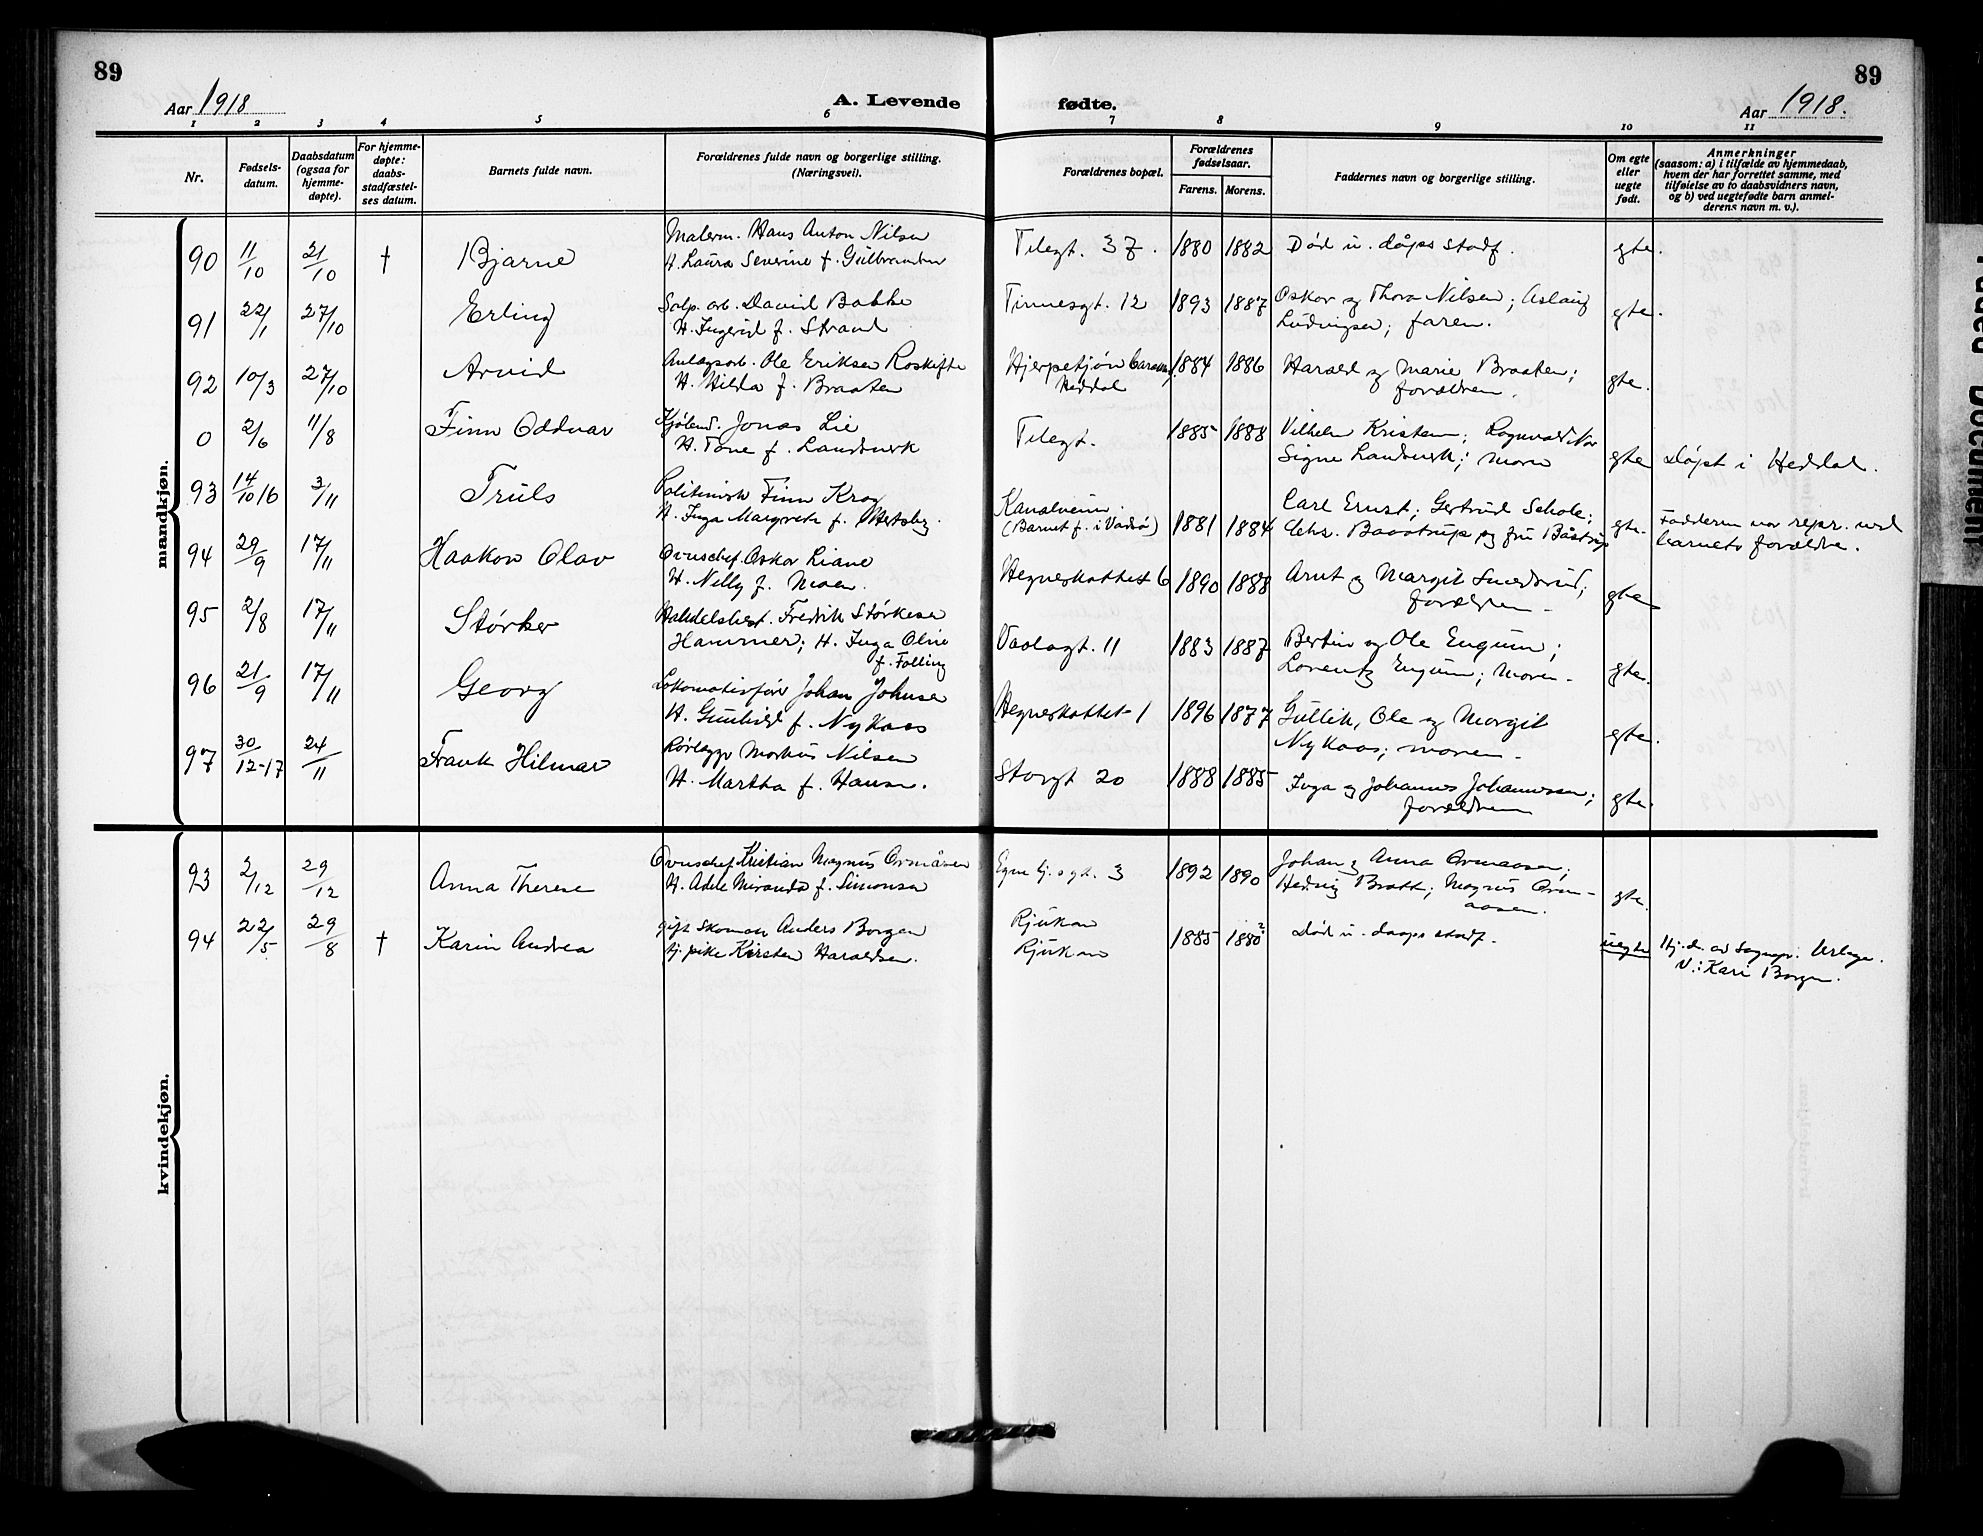 89
89
Aar 1918
A. Levende
fødte.
Aar 1918.
1 2 3 4 5 6 7 8 9 10 11
Nr.
Fødsels-
datum.
Daabsdatum
(ogsaa for
hjemme-
døpte).
For hjemme-
døpte:
daabs-
stadfæstel-
ses datum.
Barnets fulde navn.
Forældrenes fulde navn og borgerlige stilling.
(Næringsvei).
Forældrenes bopæl.
Forældrenes
fødselsaar.
Farens. Morens.
Faddernes navn og borgerlige stilling.
Om egte
eller
uegte
født.
Anmerkninger
(saasom: a) i tilfælde av hjemmedaab,
hvem der har forrettet samme, med
tilføielse av to daabsvidners navn,
og b) ved uegtefødte barn anmel-
derens navn m. v.).
mandkjøn.
90 11/10 21/10 † Bjarne
Malerm. Hans Anton Nilsen
H. Laura Severine f. Gulbrandsen
Telegt. 37. 1880 1882 Død u. dåps stadf. gte.
91 22/1 27/10 Erling
Salp. arb. David Bakke
H. Ingerid f. Strand
Tinnesgt. 12 1893 1887
Oskar og Thora Nilsen; Aslaug
Ludvigsen; faren.
gte.
92 10/3 27/10 Arvid
Anlægsarb. Ole Eriksen Roskifte
H. Hilda f. Braaten
Hjerpetjøn
Heddal
1884 1886
Harald og Marie Braaten;
forældren.
gte.
0 2/6 11/8 Finn Oddvar
Jonas Lie
H. Tone f. Landsverk
Telegt. 1885 1888
Vilhelm Kristensen; Ragnvald
Signe Landsverk; moren
gte Døpt i Heddal.
93 14/10 16 3/11 Truls
Politimester Finn Krog
H. Inga Margrete f. Hertzberg.
Kanalveien.
(Barnet f. i Vadsø)
1881 1884
Carl Ernst; Gertrud Schole;
Baastrup og fru Båstrup
gte.
Fadderne var repr. ved
barnets forældre.
94 29/9 17/11 Haakon Olav
Ovnschef Oskar Liane
H. Nelly f. Moen.
Hegnerkottet 6 1890 1888
Arnt og Margit Smedsrud;
forældren.
gte
95 2/8 17/11 Størker
Handelsbest. Fredrik Størkersen
Hammer; H. Inga Oline
f. Følling
Vaalagt. 11 1883 1887
Bertin og Ole Engum;
Lorentz Engum; moren.
gte.
96 21/9 17/11 Georg
Lokomotivfører Johan Johnsen
H. Gunhild f. Nykaas
Hegnerkottet 1 1896 1877
Gullik, Ole og Margit
Nykaas; moren.
gte.
97 30/12-17 24/11 Frank Hilmar
Rørlegger Markus Nilsen
H. Martha f. Hansen.
Storgt 20 1888 1885
Inga og Johannes Johannessen;
forældren
gte.
kvindekjøn.
93 2/12 29/12 Anna Therese
Ovnschef Kristian Magnus Ormåsen
H. Adele Miranda f. Simonsen
Egne hj. s gt. 3 1892 1890
Johan og Anna Ormaasen;
Hedvig Bratt; Magnus Orm-
aasen.
gte.
94 22/5 29/8 † Karin Andrea
gift Skomak Anders Borgen
tj. pike Kirsten Haraldsen.
Rjukan
Rjukan
1885 1880? Død u. daaps stadf. uegte
Hj. d. av Sognepr. Urbye.
V.: Kari Borgen.